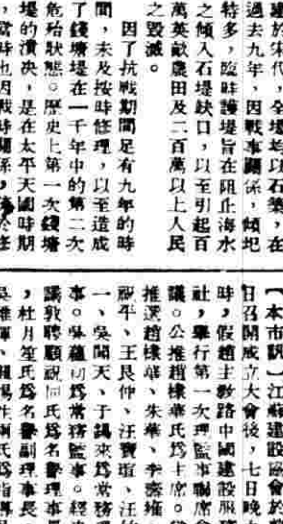 建於宋代，全塲均以石築，在
過去九年，因戰事關係，傾圯
特多，臨時護堤旨在阻止海水
之傾入石堤缺口，以至引起百
萬英畝農田及二百萬以上人民
之毀滅。
因了抗戰期間足有九年的時
間，未及按時修理，以至造成
了錢塘堤在一千年中的第二次
危殆狀態。歷史上第一次錢塘
堤的潰決，是在太平天國時期
，當時也因戰時關係，
【本市訊】江蘇建設協會於
日召開成立大會後，七日晚
時，假趙主教路中國建設服
社，舉行第一次理監事聯席
議。公推趙棣華氏爲主席。
推選趙棣華、朱華、李壽雍
祝平、王艮仲、汪寶瑄、汪
一、吳聞天、于錫來爲常務
事。吳蘊初爲常務監事。經
議敦聘顧祝同氏爲名譽理事
，杜月笙氏爲名譽副理事長
吳稚暉、鈕惕生兩氏爲指導